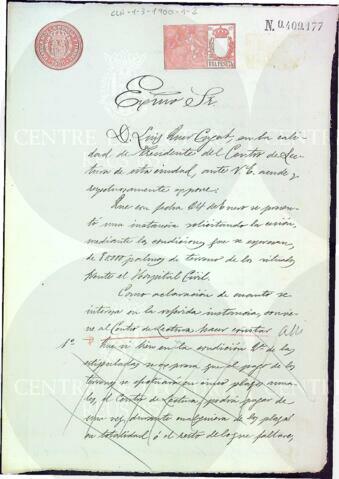 CLH-1-3-1900-1-2
N. 0.409.177
UNA PESETA
Exmo Sr.
D. Luis Quer Cugat, en la cali-
dad de Presidente del Centro de Lec-
tura de esta ciudad, ante V. E. acude y
respetuosamente expone:
Que con fecha 24 de Enero se presen-
tó una instancia solicitando la cesión,
mediante las condiciones que se expresan,
de 8.000 palmos de terreno de los situados
frente el Hospital Civil.
Como aclaración de cuanto se
interesa en la referida instancia, convie-
ne al Centro de Lectura hacer constar
1º Que si bien en la condición Vª de las
estipuladas se expresa que el pago de los
terrenos se efectuará en cinco plazos anua-
les, el Centro de Lectura, podrá pagar de
una vez, durante cualquiera de los plazos
en totalidad ó el resto de lo que faltare,